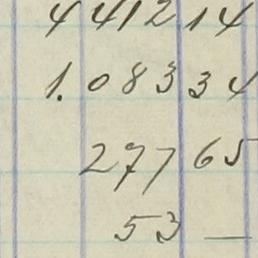 441214
1.08334
27765
53 —